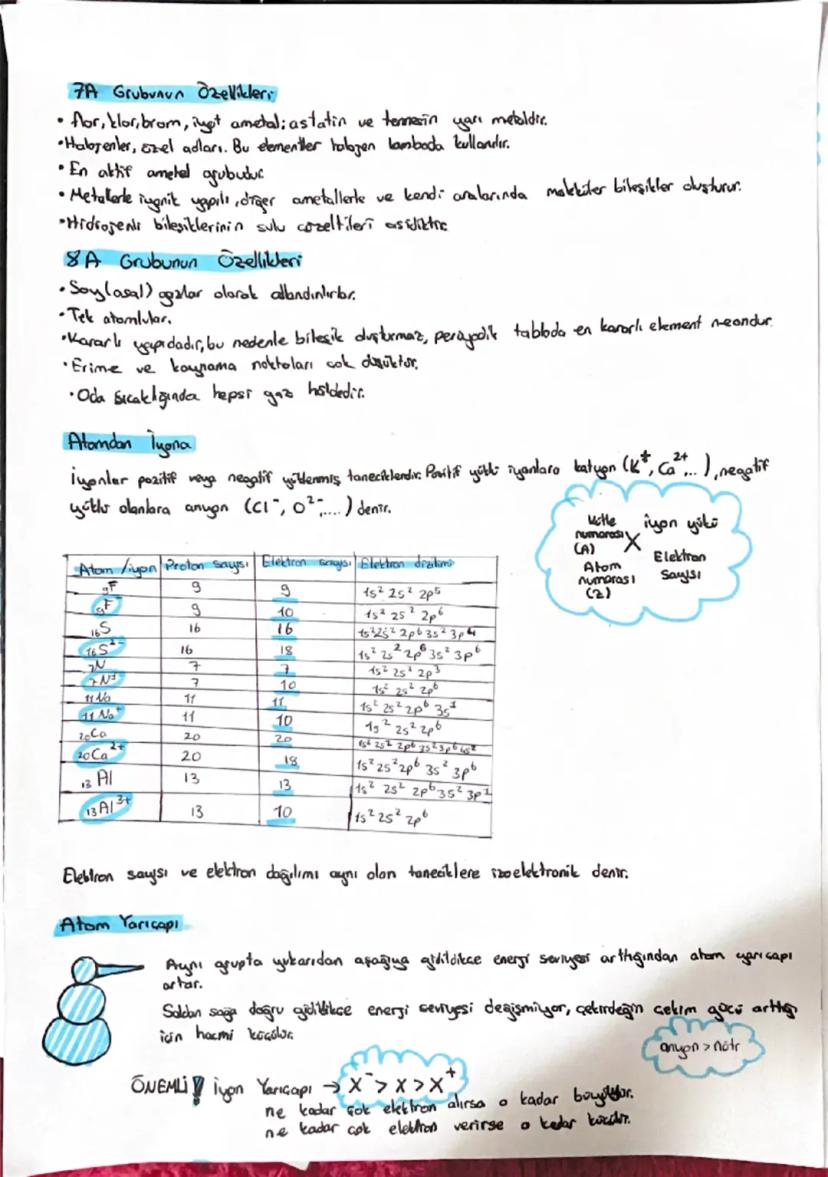 7A Grubunun Özellikleri
• flor, klor, brom, iyot ametal; astatin ve tennesin yarı metaldir.
• Halojenler, özel adları. Bu elementler halojen lambada kullanılır.
• En aktif ametal grubudur.
• Metallerle iyonik yapılı, diğer ametallerle ve kendi aralarında moleküler bileşikler oluşturur.
• Hidrojenli bileşiklerinin sulu çözeltileri asidiktir.
8A Grubunun Özellikleri
• Soy (asal) gazlar olarak adlandırılırlar.
• Tek atomlular.
• Kararlı yapıdadır, bu nedenle bileşik oluşturmaz, periyodik tabloda en kararlı element neondur.
• Erime ve kaynama noktaları çok düşüktür.
• Oda sıcaklığında hepsi gaz haldedir.
Atomdan İyona
İyonlar pozitif veya negatif yüklenmiş taneciklerdir. Pozitif yüklü iyonlara katyon (K⁺, Ca²⁺...), negatif
yüklü olanlara anyon (Cl⁻, O²⁻,....) denir.
Kütle numarası (A) X iyon yükü
Atom numarası (z) Elektron Sayısı
Atom / iyon Proton sayısı Elektron sayısı Elektron dizilimi
₉F 9 9 1s² 2s² 2p⁵
₉F⁻ 9 10 1s² 2s² 2p⁶
₁₆S 16 16 1s² 2s² 2p⁶ 3s² 3p⁴
₁₆S²⁻ 16 18 1s² 2s² 2p⁶ 3s² 3p⁶
₇N 7 7 1s² 2s² 2p³
₇N³⁻ 7 10 1s² 2s² 2p⁶
₁₁Na 11 11 1s² 2s² 2p⁶ 3s¹
₁₁Na⁺ 11 10 1s² 2s² 2p⁶
₂₀Ca 20 20 1s² 2s² 2p⁶ 3s² 3p⁶ 4s²
₂₀Ca²⁺ 20 18 1s² 2s² 2p⁶ 3s² 3p⁶
₁₃Al 13 13 1s² 2s² 2p⁶ 3s² 3p¹
₁₃Al³⁺ 13 10 1s² 2s² 2p⁶
Elektron sayısı ve elektron dağılımı aynı olan taneciklere izoelektronik denir.
Atom Yarıçapı
Aynı grupta yukarıdan aşağıya gidildikçe enerji seviyesi arttığından atom yarıçapı
artar.
Soldan sağa doğru gidildikçe enerji seviyesi değişmiyor, çekirdeğin çekim gücü arttığı
için hacmi küçülür.
anyon > nötr
ÖNEMLİ! İyon Yarıçapı → X⁻ > X > X⁺
ne kadar çok elektron alırsa o kadar büyüktür.
ne kadar çok elektron verirse o kadar küçülür.